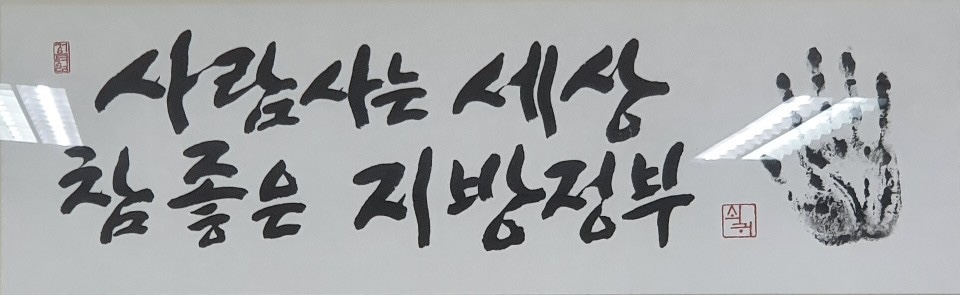 사람사는 세상
참좋은 지방정부